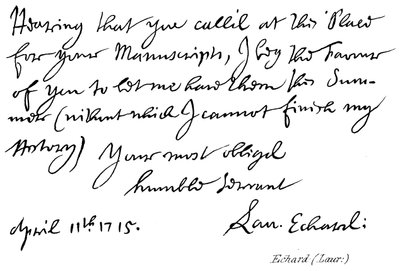 Hearing that you call'd at this Place
for your Manuscripts, I beg the Favour
of you to let me have them this Sum-
mer (without which I cannot finish my
History) Your most obliged
humble servant
April 11th. 1715. Lau. Echard:
Echard (Laur:)